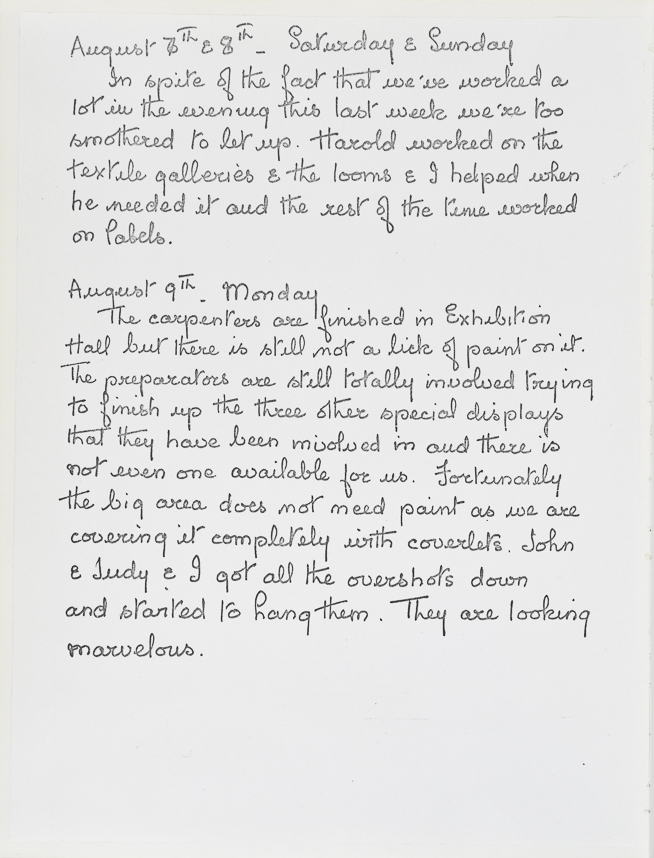 August 7TH & 8TH - Saturday & Sunday
In spite of the fact that we've worked a
lot in the evening this last week we're too
smothered to let up. Harold worked on the
textile galleries & the looms & I helped when
he needed it and the rest of the time worked
on labels.
August 9TH - Monday
The carpenters are finished in Exhibition
Hall but there is still not a lick of paint on it.
The preparators are still totally involved trying
to finish up the three other special displays
that they have been involved in and there is
not even one available for us. Fortunately
the big area does not need paint as we are
covering it completely with coverlets. John
& Judy & I got all the overshots down
and started to hang them. They are looking
marvelous.